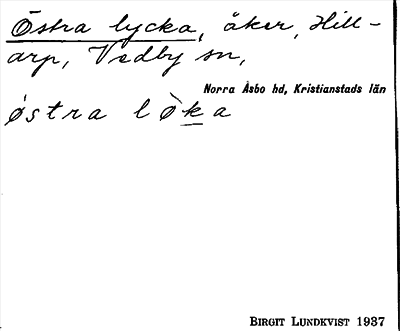 Östra lycka, åker, Hill-
arp, Vedby sn,
Norra Åsbo hd, Kristianstads län
ǿstra lø̀ḵa
BIRGIT LUNDKVIST 1937